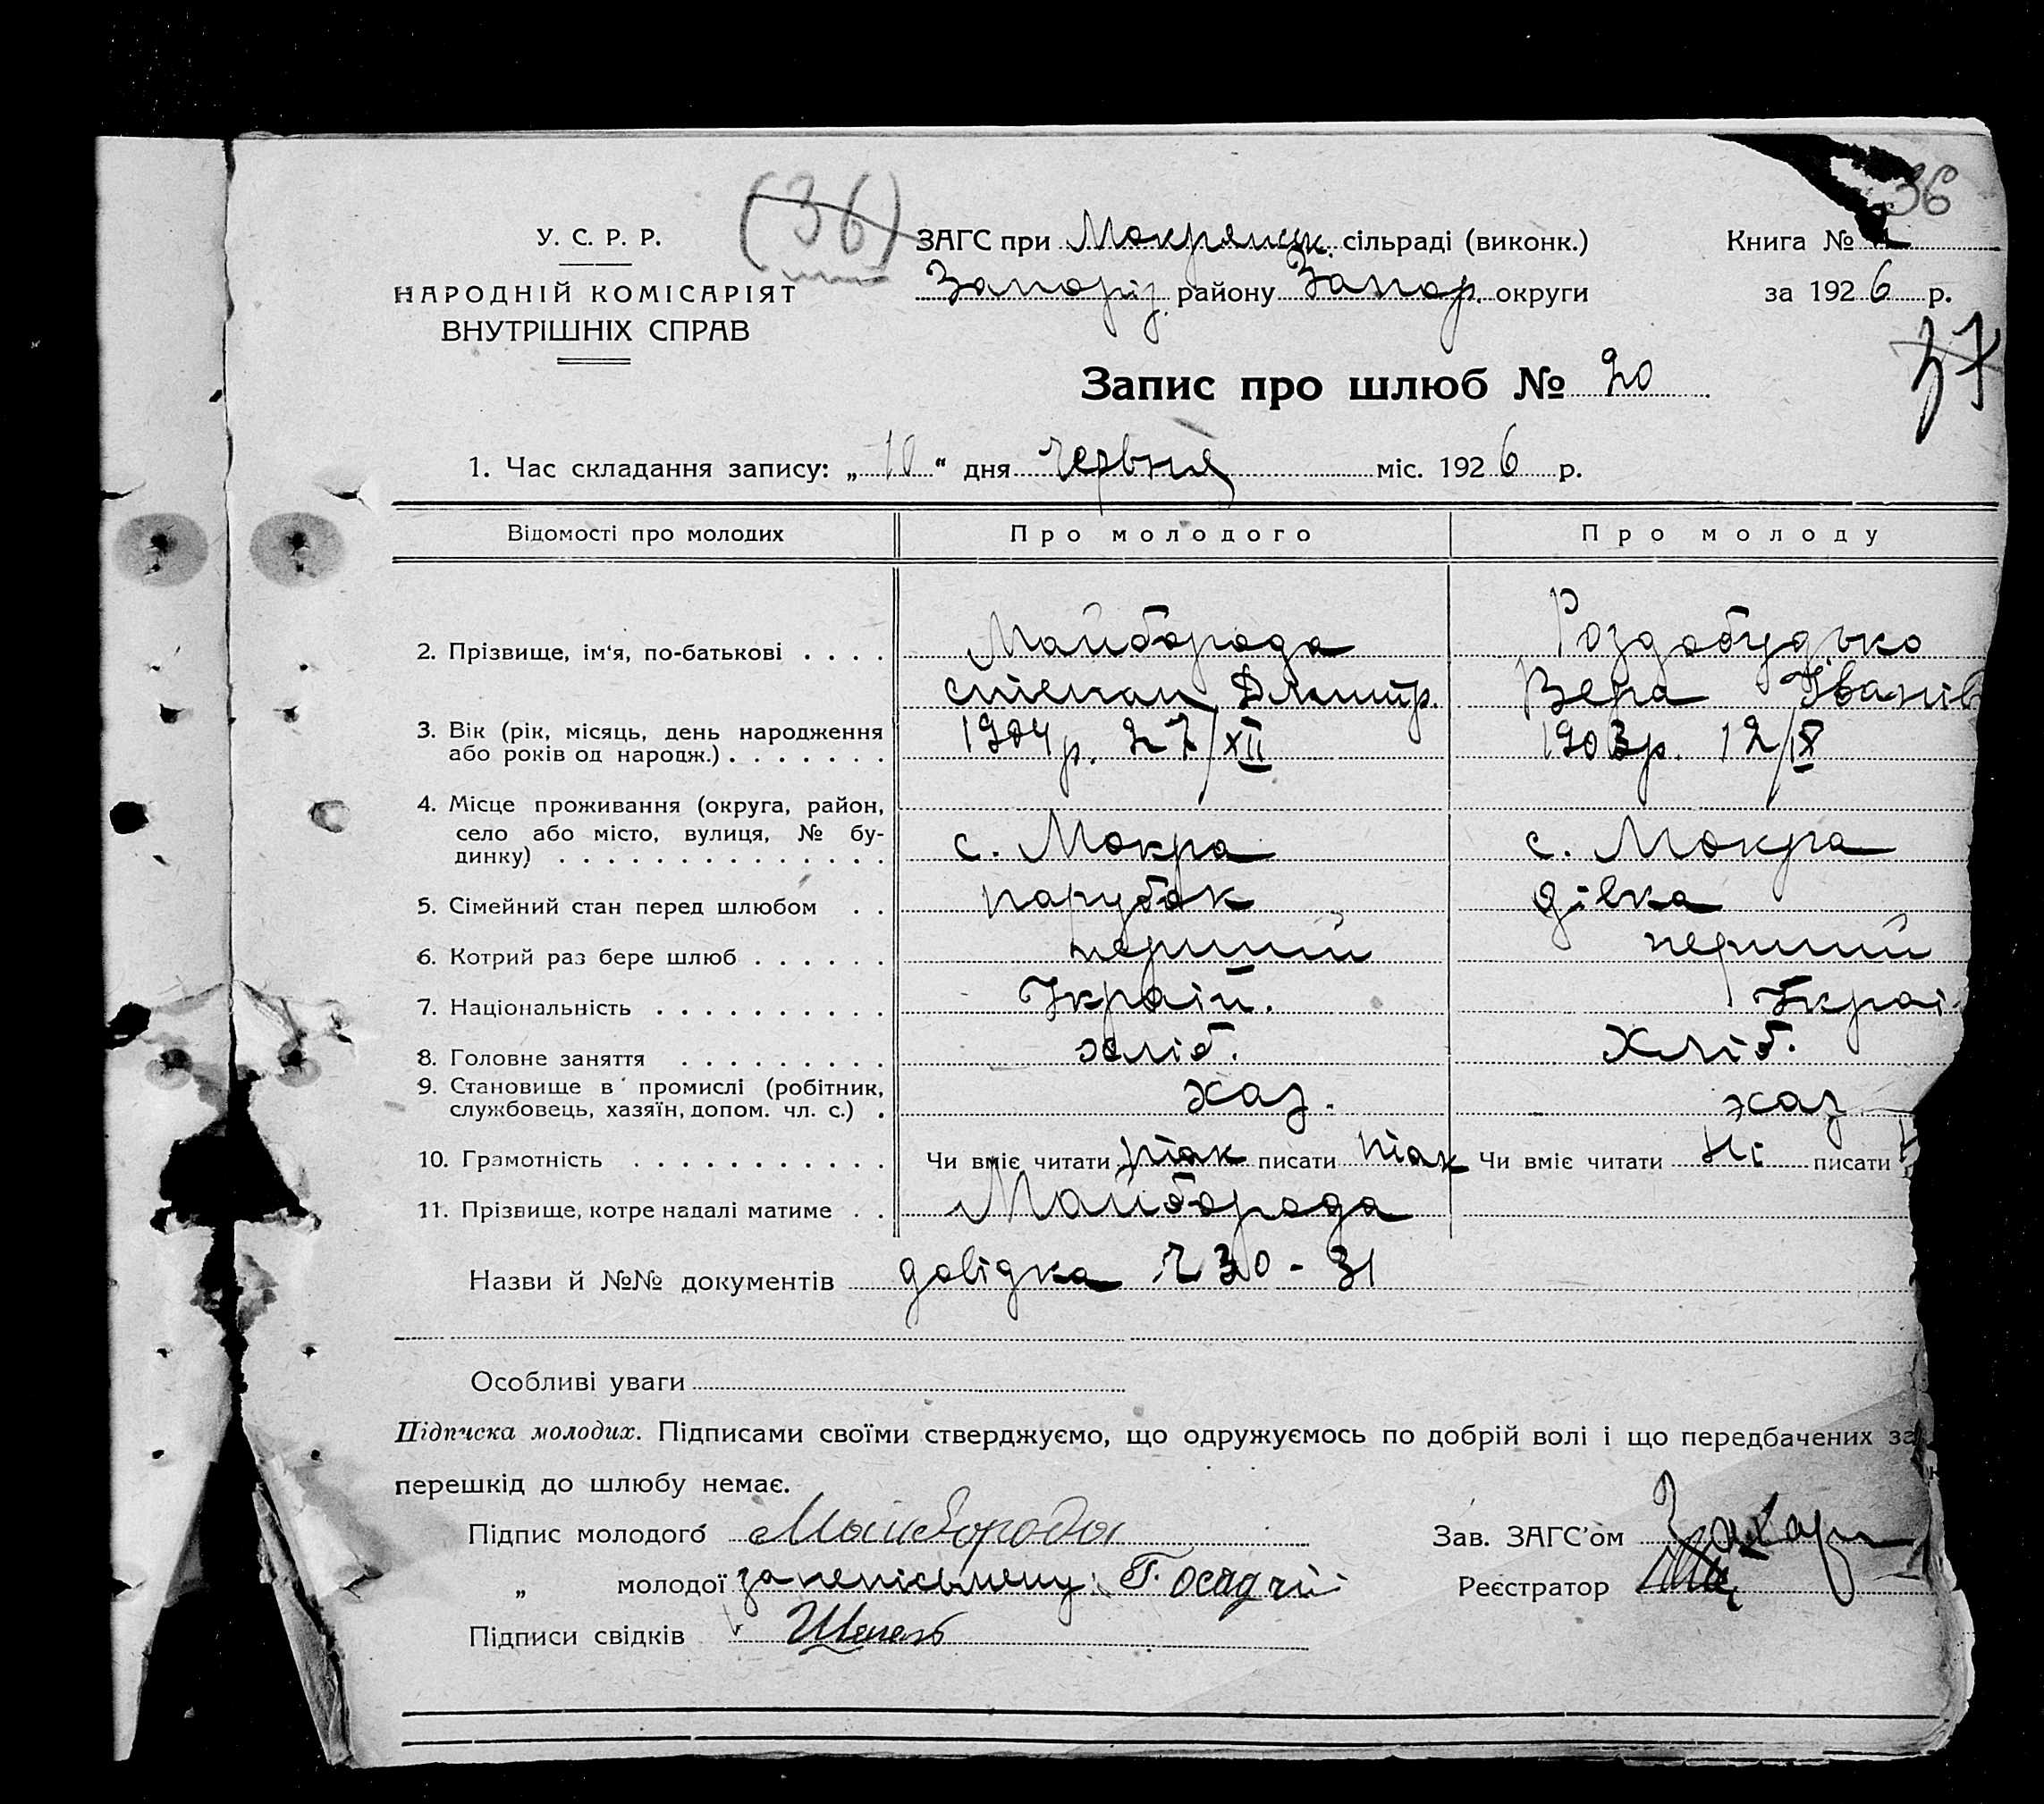 36
(36)
У. С. Р. Р.
НАРОДНІЙ КОМІСАРІЯТ
ВНУТРІШНІХ СПРАВ
ЗАГС при Мокрянськ. сільраді (виконк.)
Запоріз. району Запор. округи
Книга №
за 1926 р.
37
Запис про шлюб № 20
1. Час складання запису: „10“ дня червня міс. 1926 р.
Відомості про молодих Про молодого Про молоду
2. Прізвище, ім‘я, по-батькові . . . . Майборода Роздобудько
Степан Дмитр. Вера Іванів
3. Вік (рік, місяць, день народження 1904 р. 27/XII 1903 р. 12/IX
або років од народж.) . . . . . . .
4. Місце проживання (округа, район,
село або місто, вулиця, № бу-
динку) . . . . . . . . . . . . . . с. Мокра с. Мокра
5. Сімейний стан перед шлюбом . . парубок дівка
6. Котрий раз бере шлюб . . . . . . перший перший
7. Національність . . . . . . . . . . Україн. Украї
8. Головне заняття . . . . . . . . . хліб. Хліб.
9. Становище в промислі (робітник,
службовець, хазяїн, допом. чл. с.) . хаз. хаз
10. Грамотність . . . . . . . . . . . Чи вміє читати так писати так Чи вміє читати Ні писати
11. Прізвище, котре надалі матиме . . Майборода
Назви й №№ документів довідка Ч 30 - 31
Особливі уваги
Підписка молодих. Підписами своїми стверджуємо, що одружуємось по добрій волі і що передбачених за
перешкід до шлюбу немає.
Підпис молодого Майборода Зав. ЗАГС’ом Захар
„ молодої за неписьмену: Г. Осадчий Реєстратор
Підписи свідків